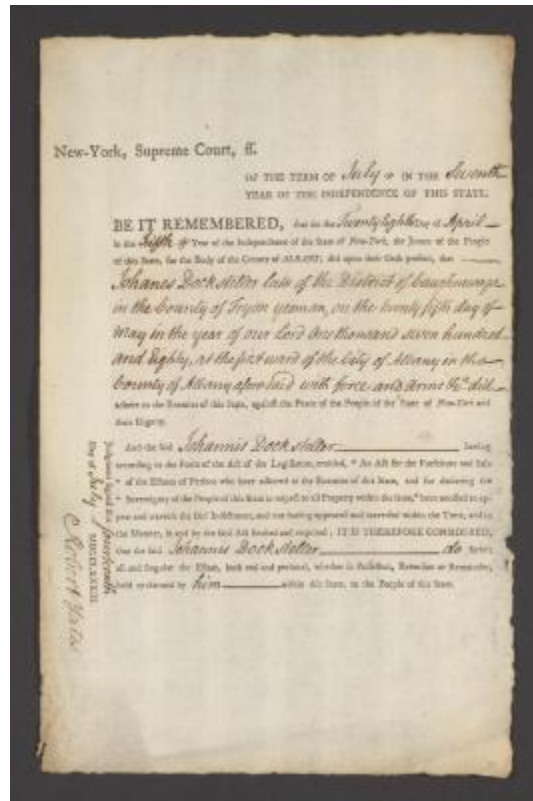 New-York, Supreme Court, ss.
OF THE TERM OF July IN THE Seventh
YEAR OF THE INDEPENDENCE OF THIS STATE.
BE IT REMEMBERED, that on the Twenty Eighth Day of April
in the fifth Year of the Independence of the State of New-York, the Jurors of the People
of this State, for the Body of the County of ALBANY, did upon their Oath present, that
Johanes Dockstetter late of the District of Caughnawaga
in the County of Tryon yeoman, on the twenty fifth day of
May in the year of our Lord One thousand seven hundred
and Eighty, at the first ward of the City of Albany in the
County of Albany aforesaid with force and Arms &c. did
adhere to the Enemies of this State, against the Peace of the People of the State of New-York and
their Dignity.
And the said Johannis Dockstetter having
according to the Form of the Act of the Legislature, entitled, "An Act for the Forfeiture and Sale
" of the Estates of Persons who have adhered to the Enemies of this State, and for declaring the
" Sovereignty of the People of this State in respect to all Property within the State," been notified to ap-
pear and traverse the said Indictment, and not having appeared and traversed within the Time, and in
the Manner, in and by the said Act limited and required; IT IS THEREFORE CONSIDERED,
that the said Johannis Dockstetter do forfeit
all and singular the Estate, both real and personal, whether in Possession, Reversion or Remainder,
held or claimed by him within this State, to the People of this State.
Judgment signed this fourteenth
Day of July MDCCLXXXIII.
Robert Yates